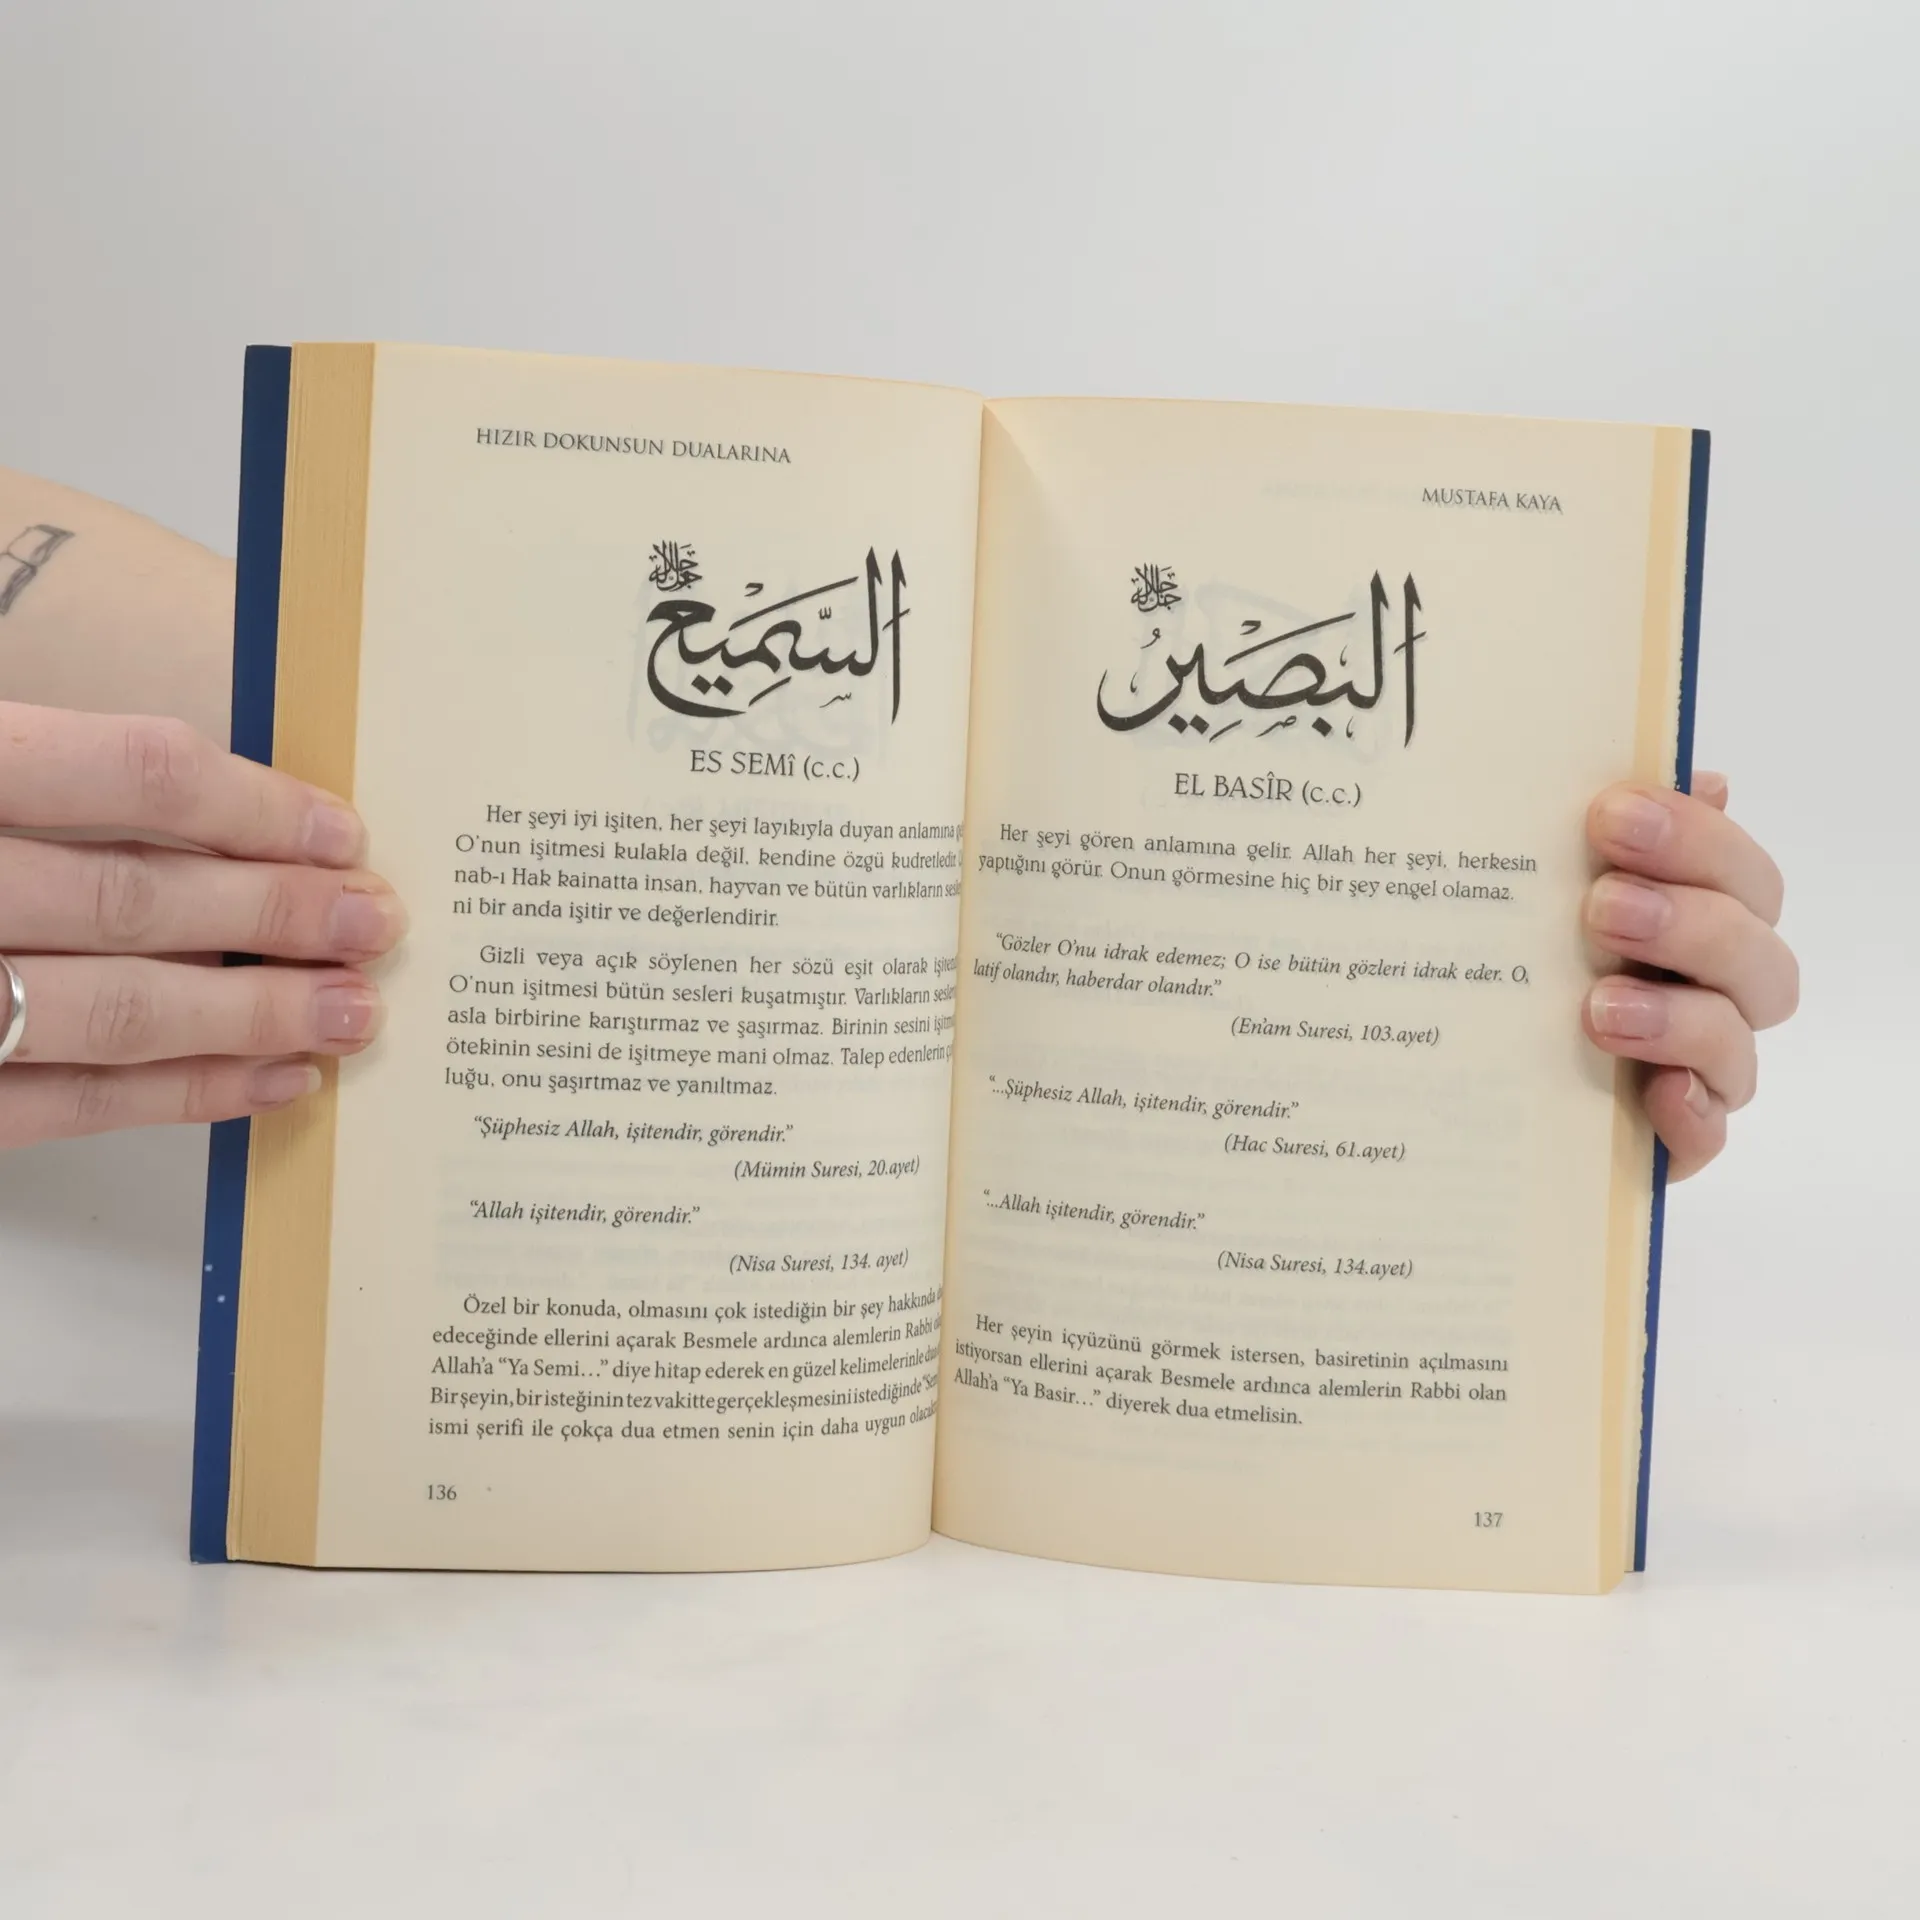 HIZIR DOKUNSUN DUALARINA
جل جلاله
السَّمِيعُ
ES SEMî (c.c.)
Her şeyi iyi işiten, her şeyi layıkıyla duyan anlamına
O'nun işitmesi kulakla değil, kendine özgü kudretledir.
nab-ı Hak kainatta insan, hayvan ve bütün varlıkların
ni bir anda işitir ve değerlendirir.
Gizli veya açık söylenen her sözü eşit olarak
O'nun işitmesi bütün sesleri kuşatmıştır. Varlıkların
asla birbirine karıştırmaz ve şaşırmaz. Birinin sesini
ötekinin sesini de işitmeye mani olmaz. Talep edenlerin
luğu, onu şaşırtmaz ve yanıltmaz.
“Şüphesiz Allah, işitendir, görendir.”
(Mümin Suresi, 20.ayet)
“Allah işitendir, görendir.”
(Nisa Suresi, 134. ayet)
Özel bir konuda, olmasını çok istediğin bir şey hakkında
edeceğinde ellerini açarak Besmele ardınca alemlerin Rabbi
Allah'a “Ya Semi…” diye hitap ederek en güzel kelimelerinle
Bir şeyin, bir isteğinin tez vakitte gerçekleşmesini istediğinde
ismi şerifi ile çokça dua etmen senin için daha uygun
136
MUSTAFA KAYA
جل جلاله
البَصِيرُ
EL BASÎR (c.c.)
Her şeyi gören anlamına gelir. Allah her şeyi, herkesin
yaptığını görür. Onun görmesine hiç bir şey engel olamaz.
“Gözler O'nu idrak edemez; O ise bütün gözleri idrak eder. O,
latif olandır, haberdar olandır.”
(En'am Suresi, 103.ayet)
“...Şüphesiz Allah, işitendir, görendir.”
(Hac Suresi, 61.ayet)
“...Allah işitendir, görendir.”
(Nisa Suresi, 134.ayet)
Her şeyin içyüzünü görmek istersen, basiretinin açılmasını
istiyorsan ellerini açarak Besmele ardınca alemlerin Rabbi olan
Allah'a “Ya Basir…” diyerek dua etmelisin.
137